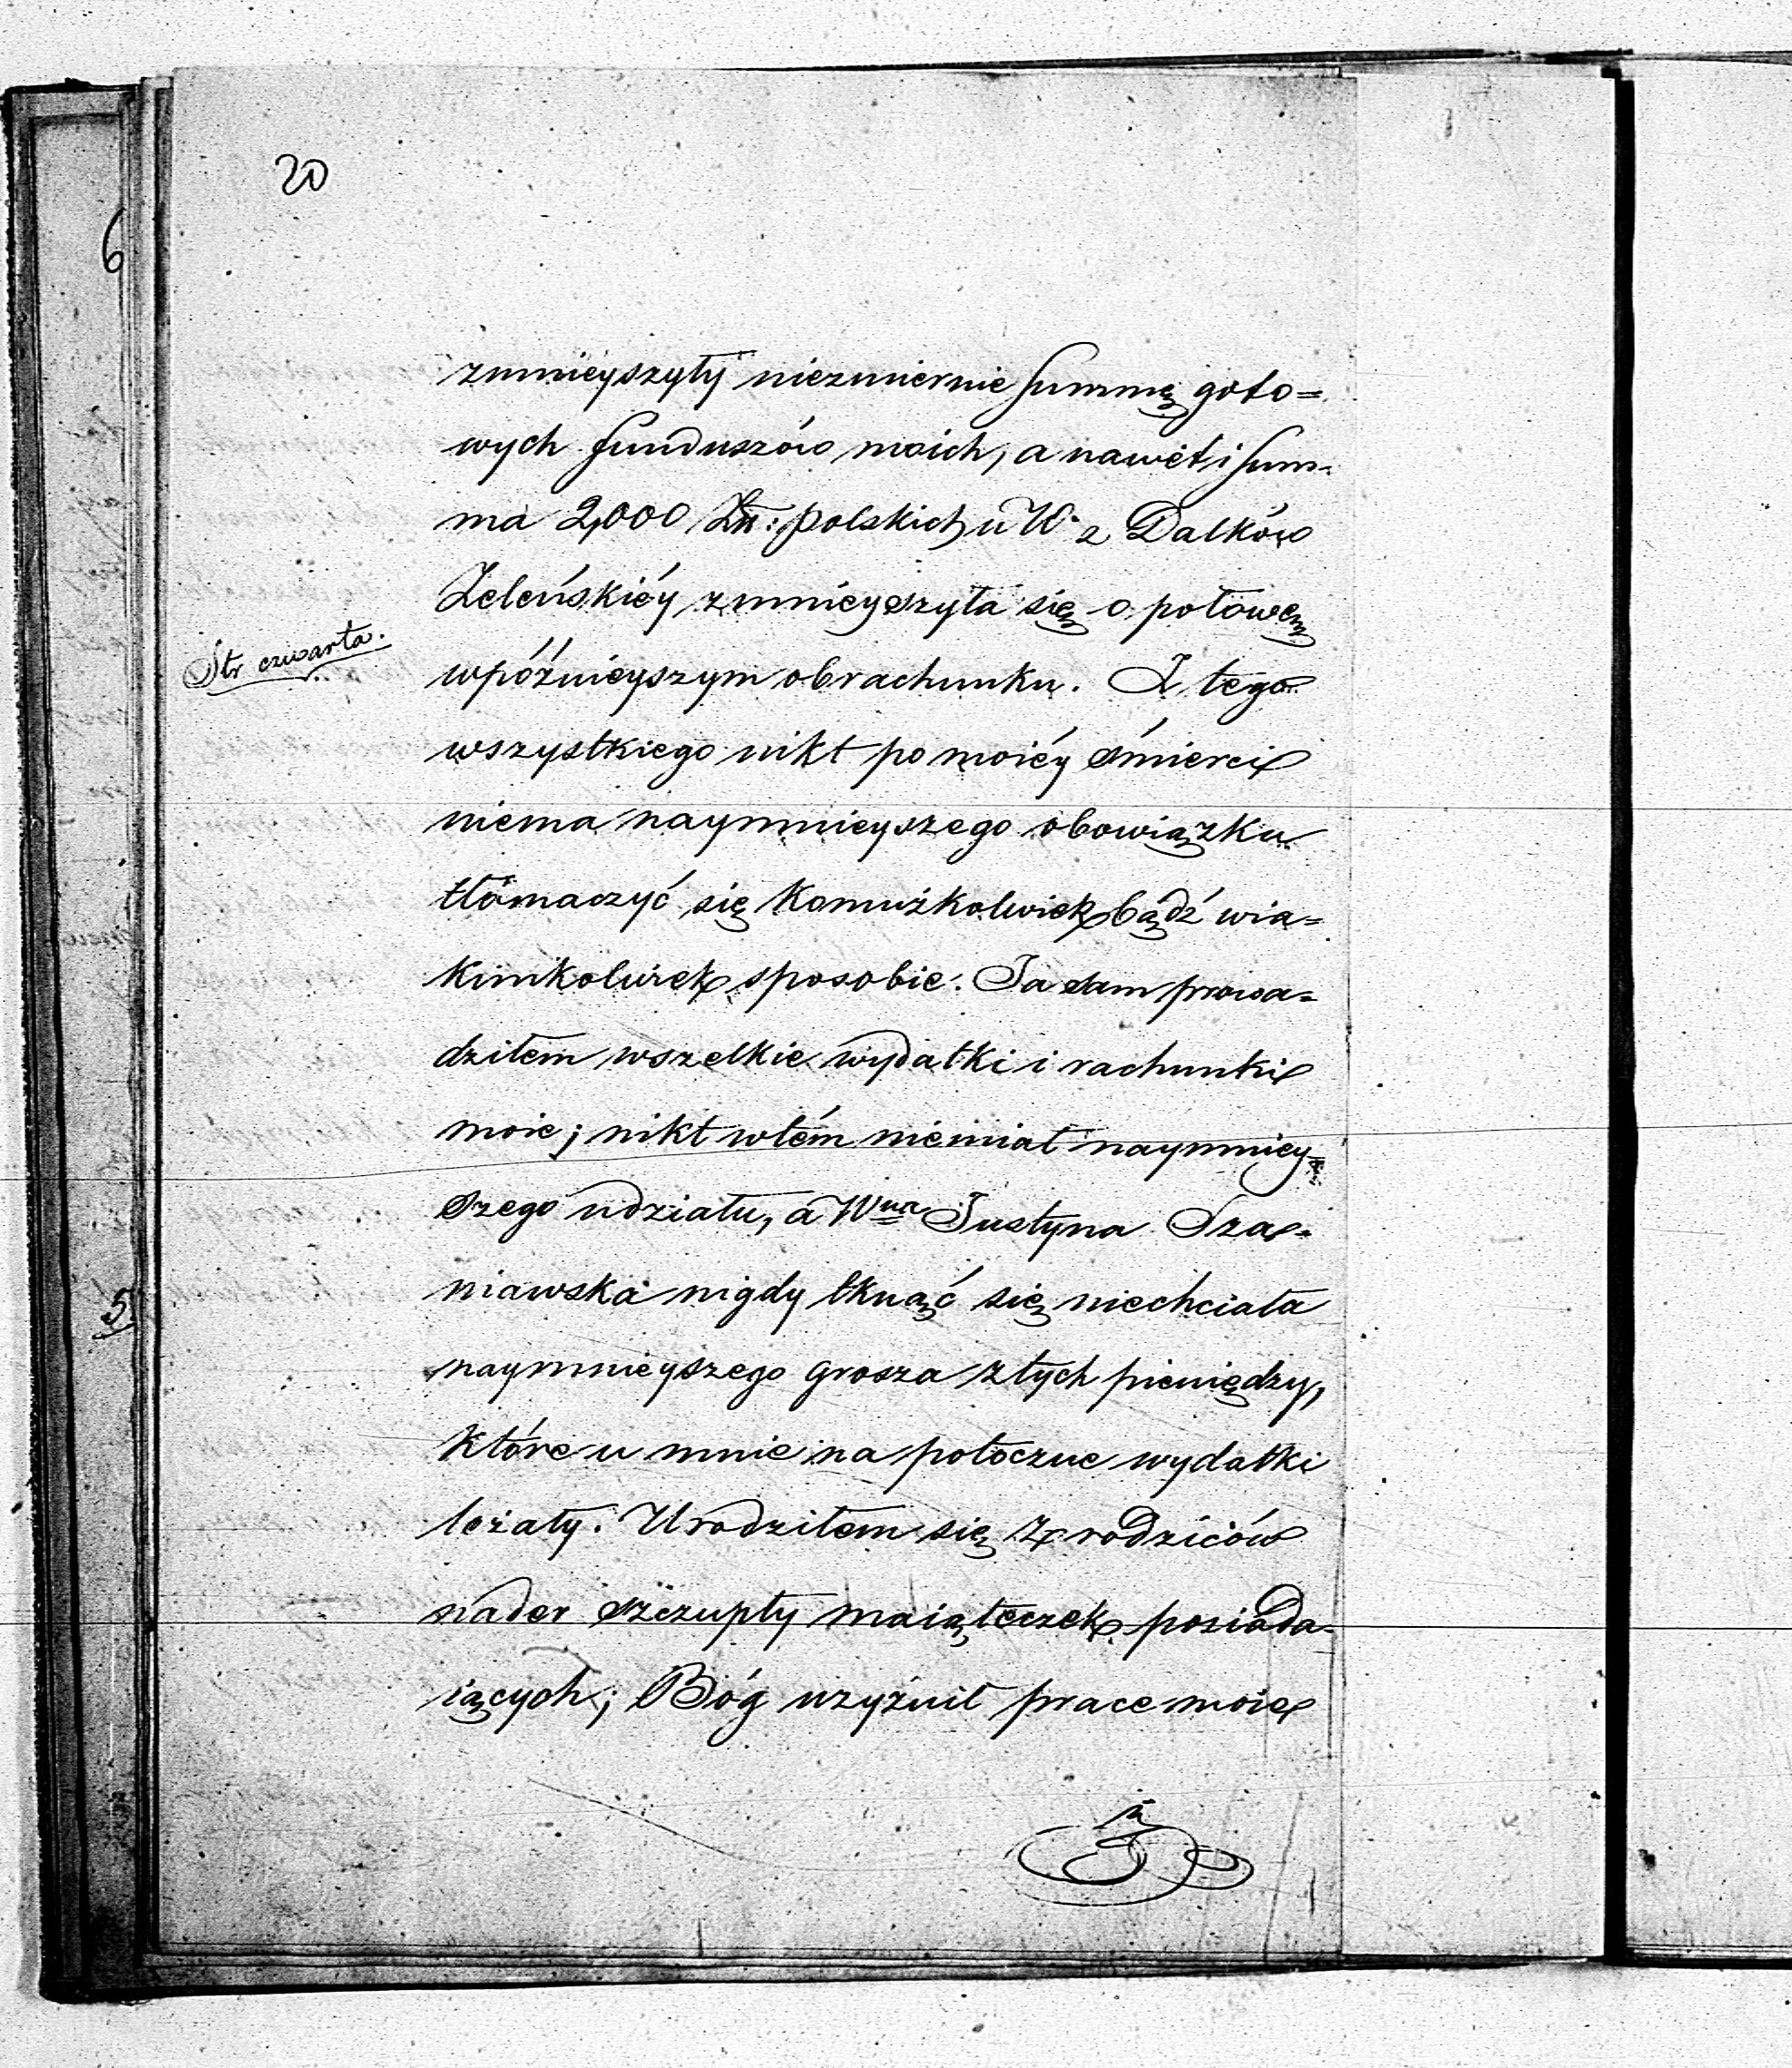 20
6
zmnieyszyły niezmiernie summę goto=
wych funduszów moich, a nawet i sum-
ma 2,000 Zł: polskich u W. z Dalków
Zeleńskiéy zmnieyszyła się o połowę
Str czwarta.
wpóźnieyszym obrachunku. Z tego
wszystkiego nikt po moiéy śmierci
niema naymnieyszego obowiązku
tłómaczyć się komużkolwiek bądź wia=
kimkolwiek sposobie. Ja sam prowa=
dziłem wszelkie wydatki i rachunki
moie; nikt wtém niemiał naymniey=
szego udziału, a Wna Justyna Sza=
niawska nigdy tknąć się niechciała
5
naymnieyszego grosza z tych pieniędzy,
które u mnie na potoczne wydatki
leżały. Urodziłem się z rodziców
nader szczupły maiąteczek posiada-
iących; Bóg użyźnił prace moie